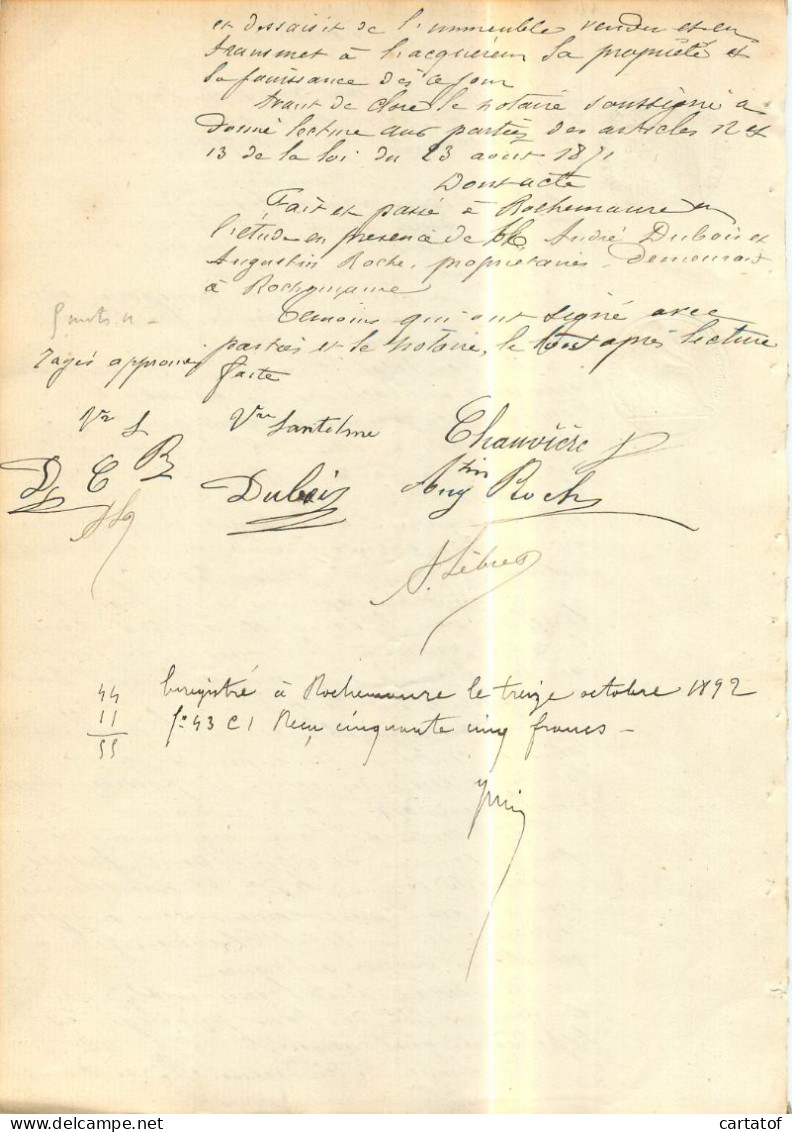 et dessaisit de l'immeuble vendu et en
transmet à l'acquéreur la propriété et
la jouissance dès ce jour
Avant de clore le notaire soussigné a
donné lecture aux parties des articles 12 et
13 de la loi du 23 août 1871
Dont acte
Fait et passé à Rochemaure en
l'étude en présence de M. André Dubois et
Augustin Roche, propriétaires, demeurant
à Rochemaure
Témoins qui ont signé avec
parties et le notaire, le tout après lecture
faite
rayés approuvés
Vve L
Vve Lantelme
Chauvière
D C R
Dubois
Aug tin Roche
A. Lèbre
44
11
55
Enregistré à Rochemaure le treize octobre 1892
fo 43 C 1 Reçu cinquante cinq francs -
cartatof